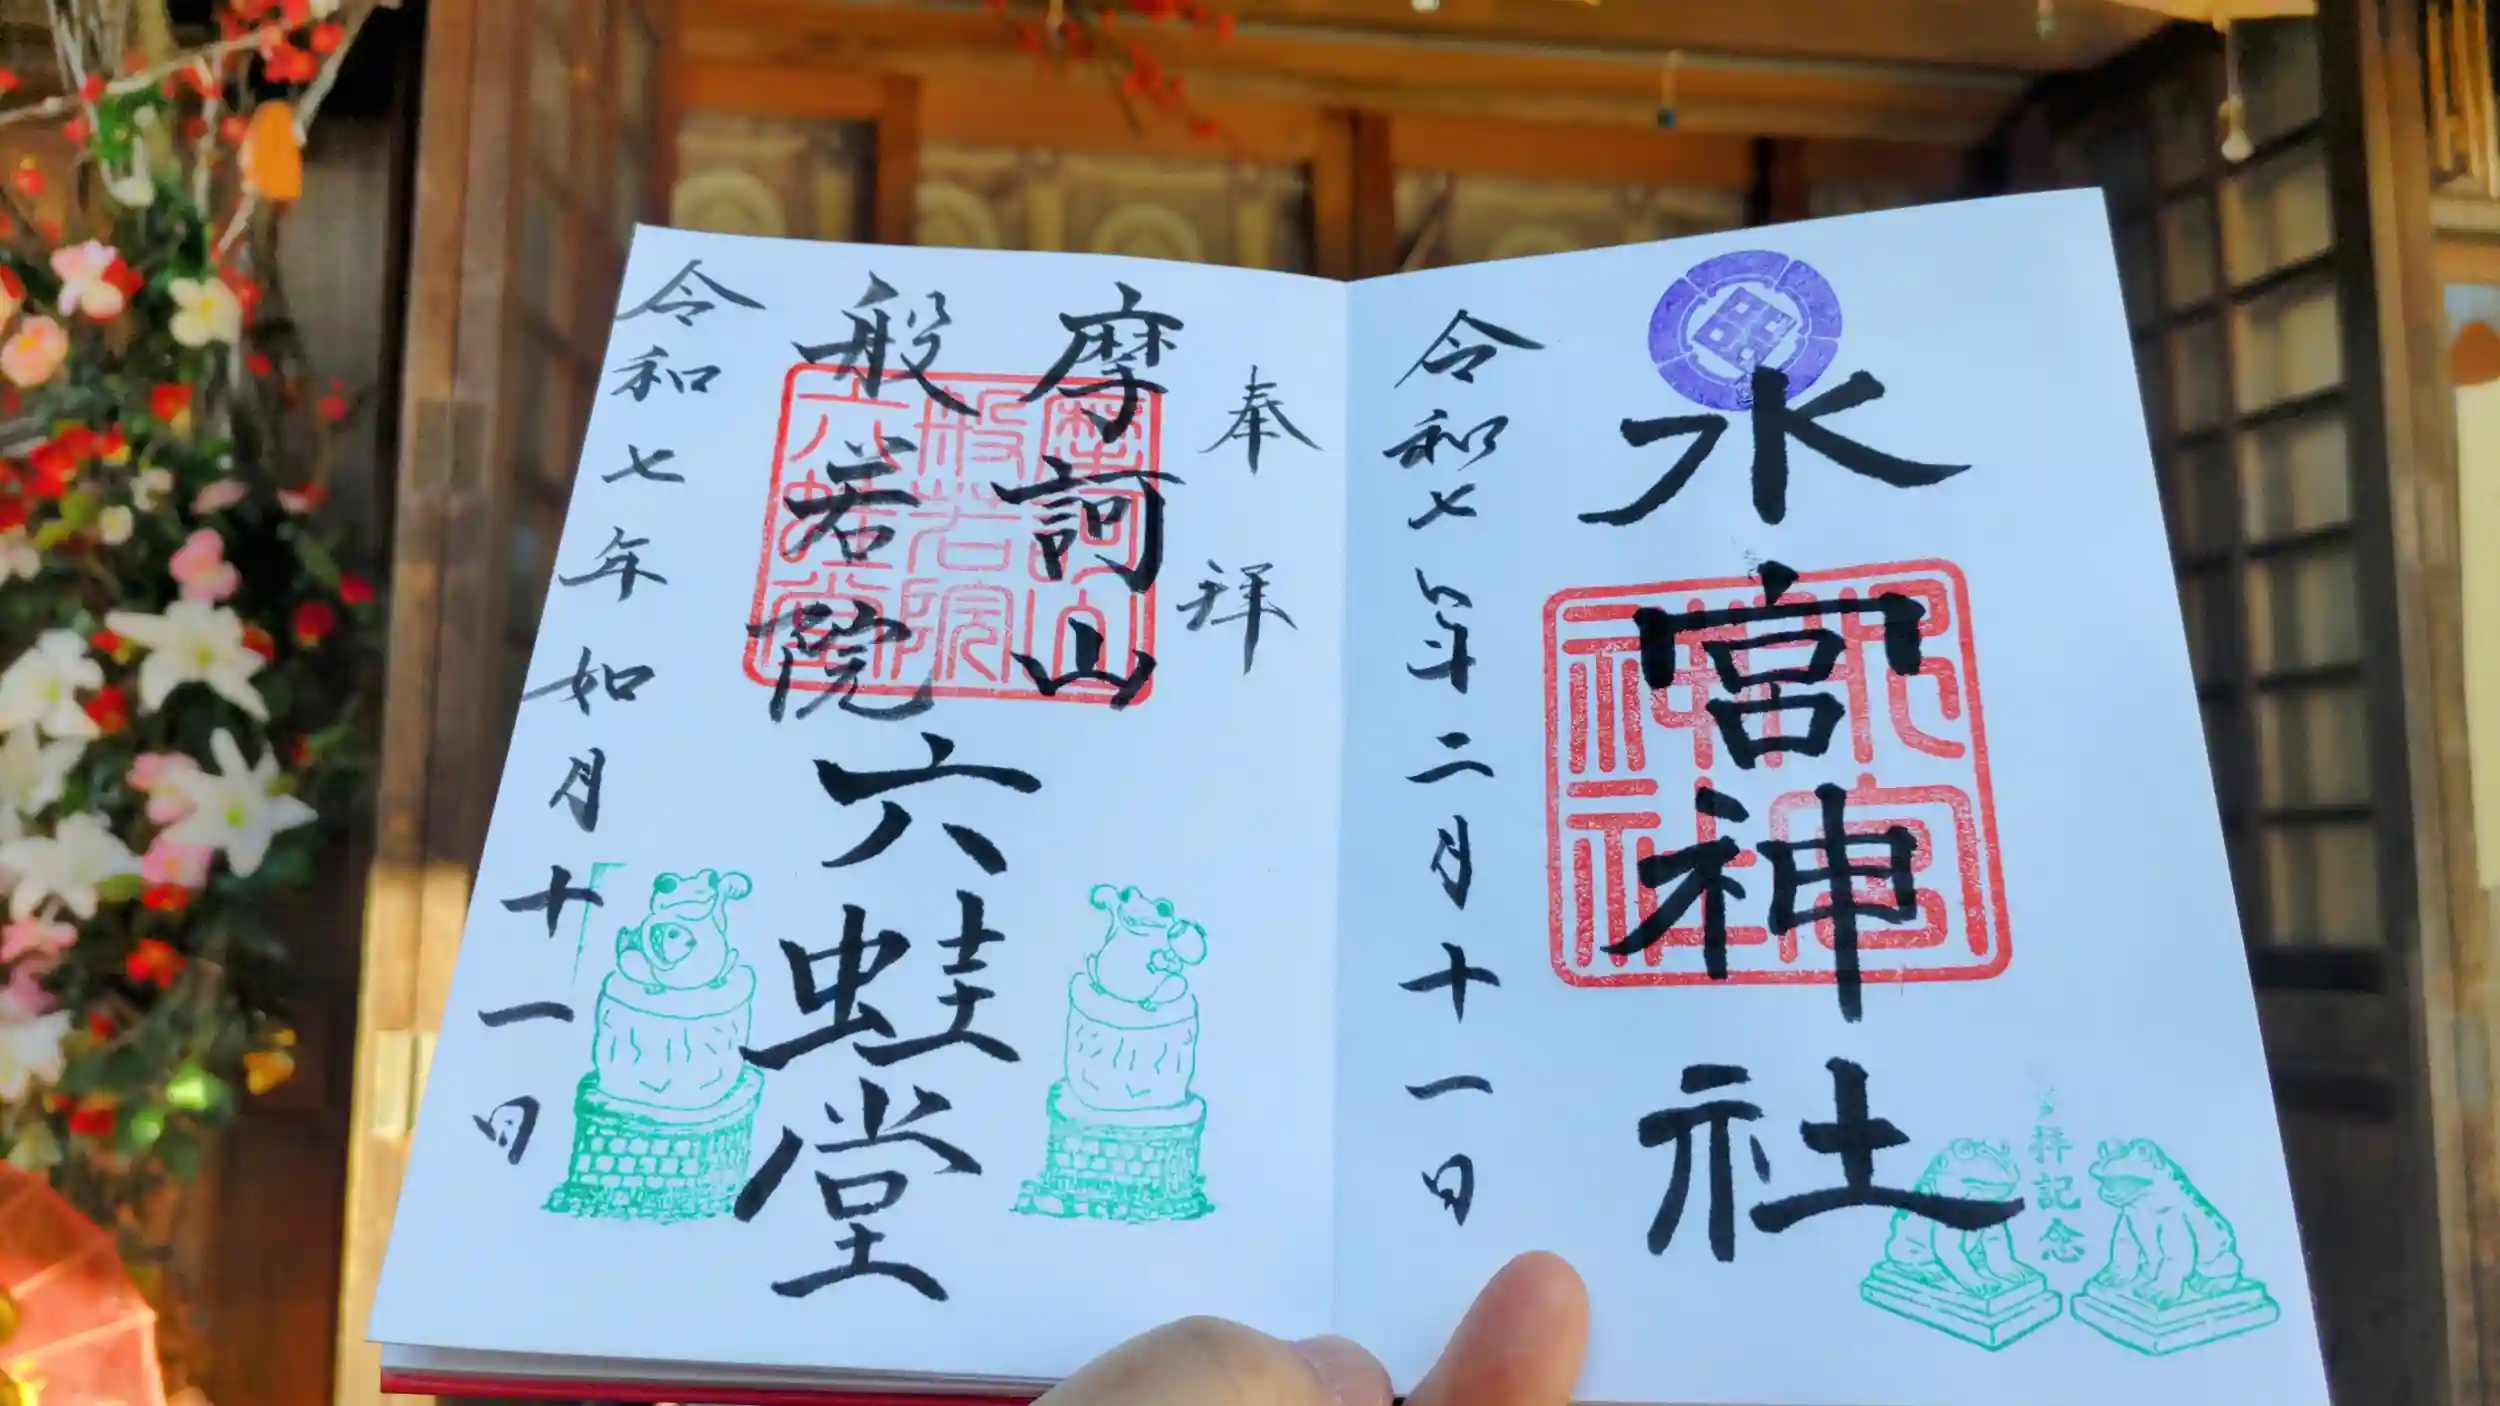 水宮神社
令和七年二月十一日
拝記念
奉拝
摩訶山
般若院
六蛙堂
令和七年如月十一日
摩訶山
般若院
六蛙堂